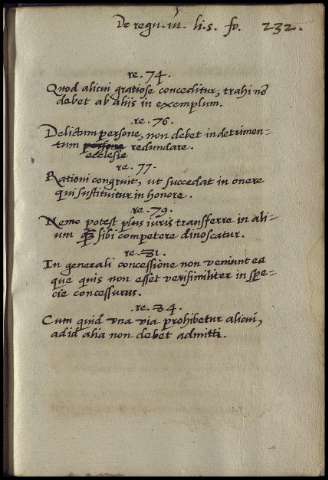 De regu. iu. li. 5. fo. 232.
re. 74.
Quod alicui gratiose conceditur, trahi nō
debet ab aliis in exemplum.
re. 76.
Delictum persone, non debet in detrimen-
tum persone redundare.
ecclesie
re. 77.
Rationi congruit, ut succedat in onere
qui substituitur in honore.
re. 79.
Nemo potest plus iuris transferre in ali-
um quā sibi competere dinoscatur.
re. 81.
In generali concessione non veniunt ea
que quis non esset verisimiliter in spe-
cie concessurus.
re. 84.
Cum quid una via prohibetur alicui,
ad id alia non debet admitti.